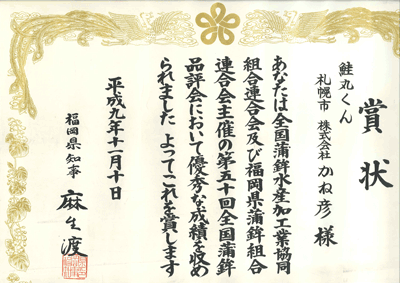 賞状
鮭丸くん
札幌市 株式会社 かね彦 様
あなたは全国蒲鉾水産加工業協同
組合連合会及び福岡県蒲鉾組合
連合会主催の第五十回全国蒲鉾
品評会において優秀な成績を収め
られました よってこれを賞します
平成九年十一月十日
福岡県知事 麻生渡